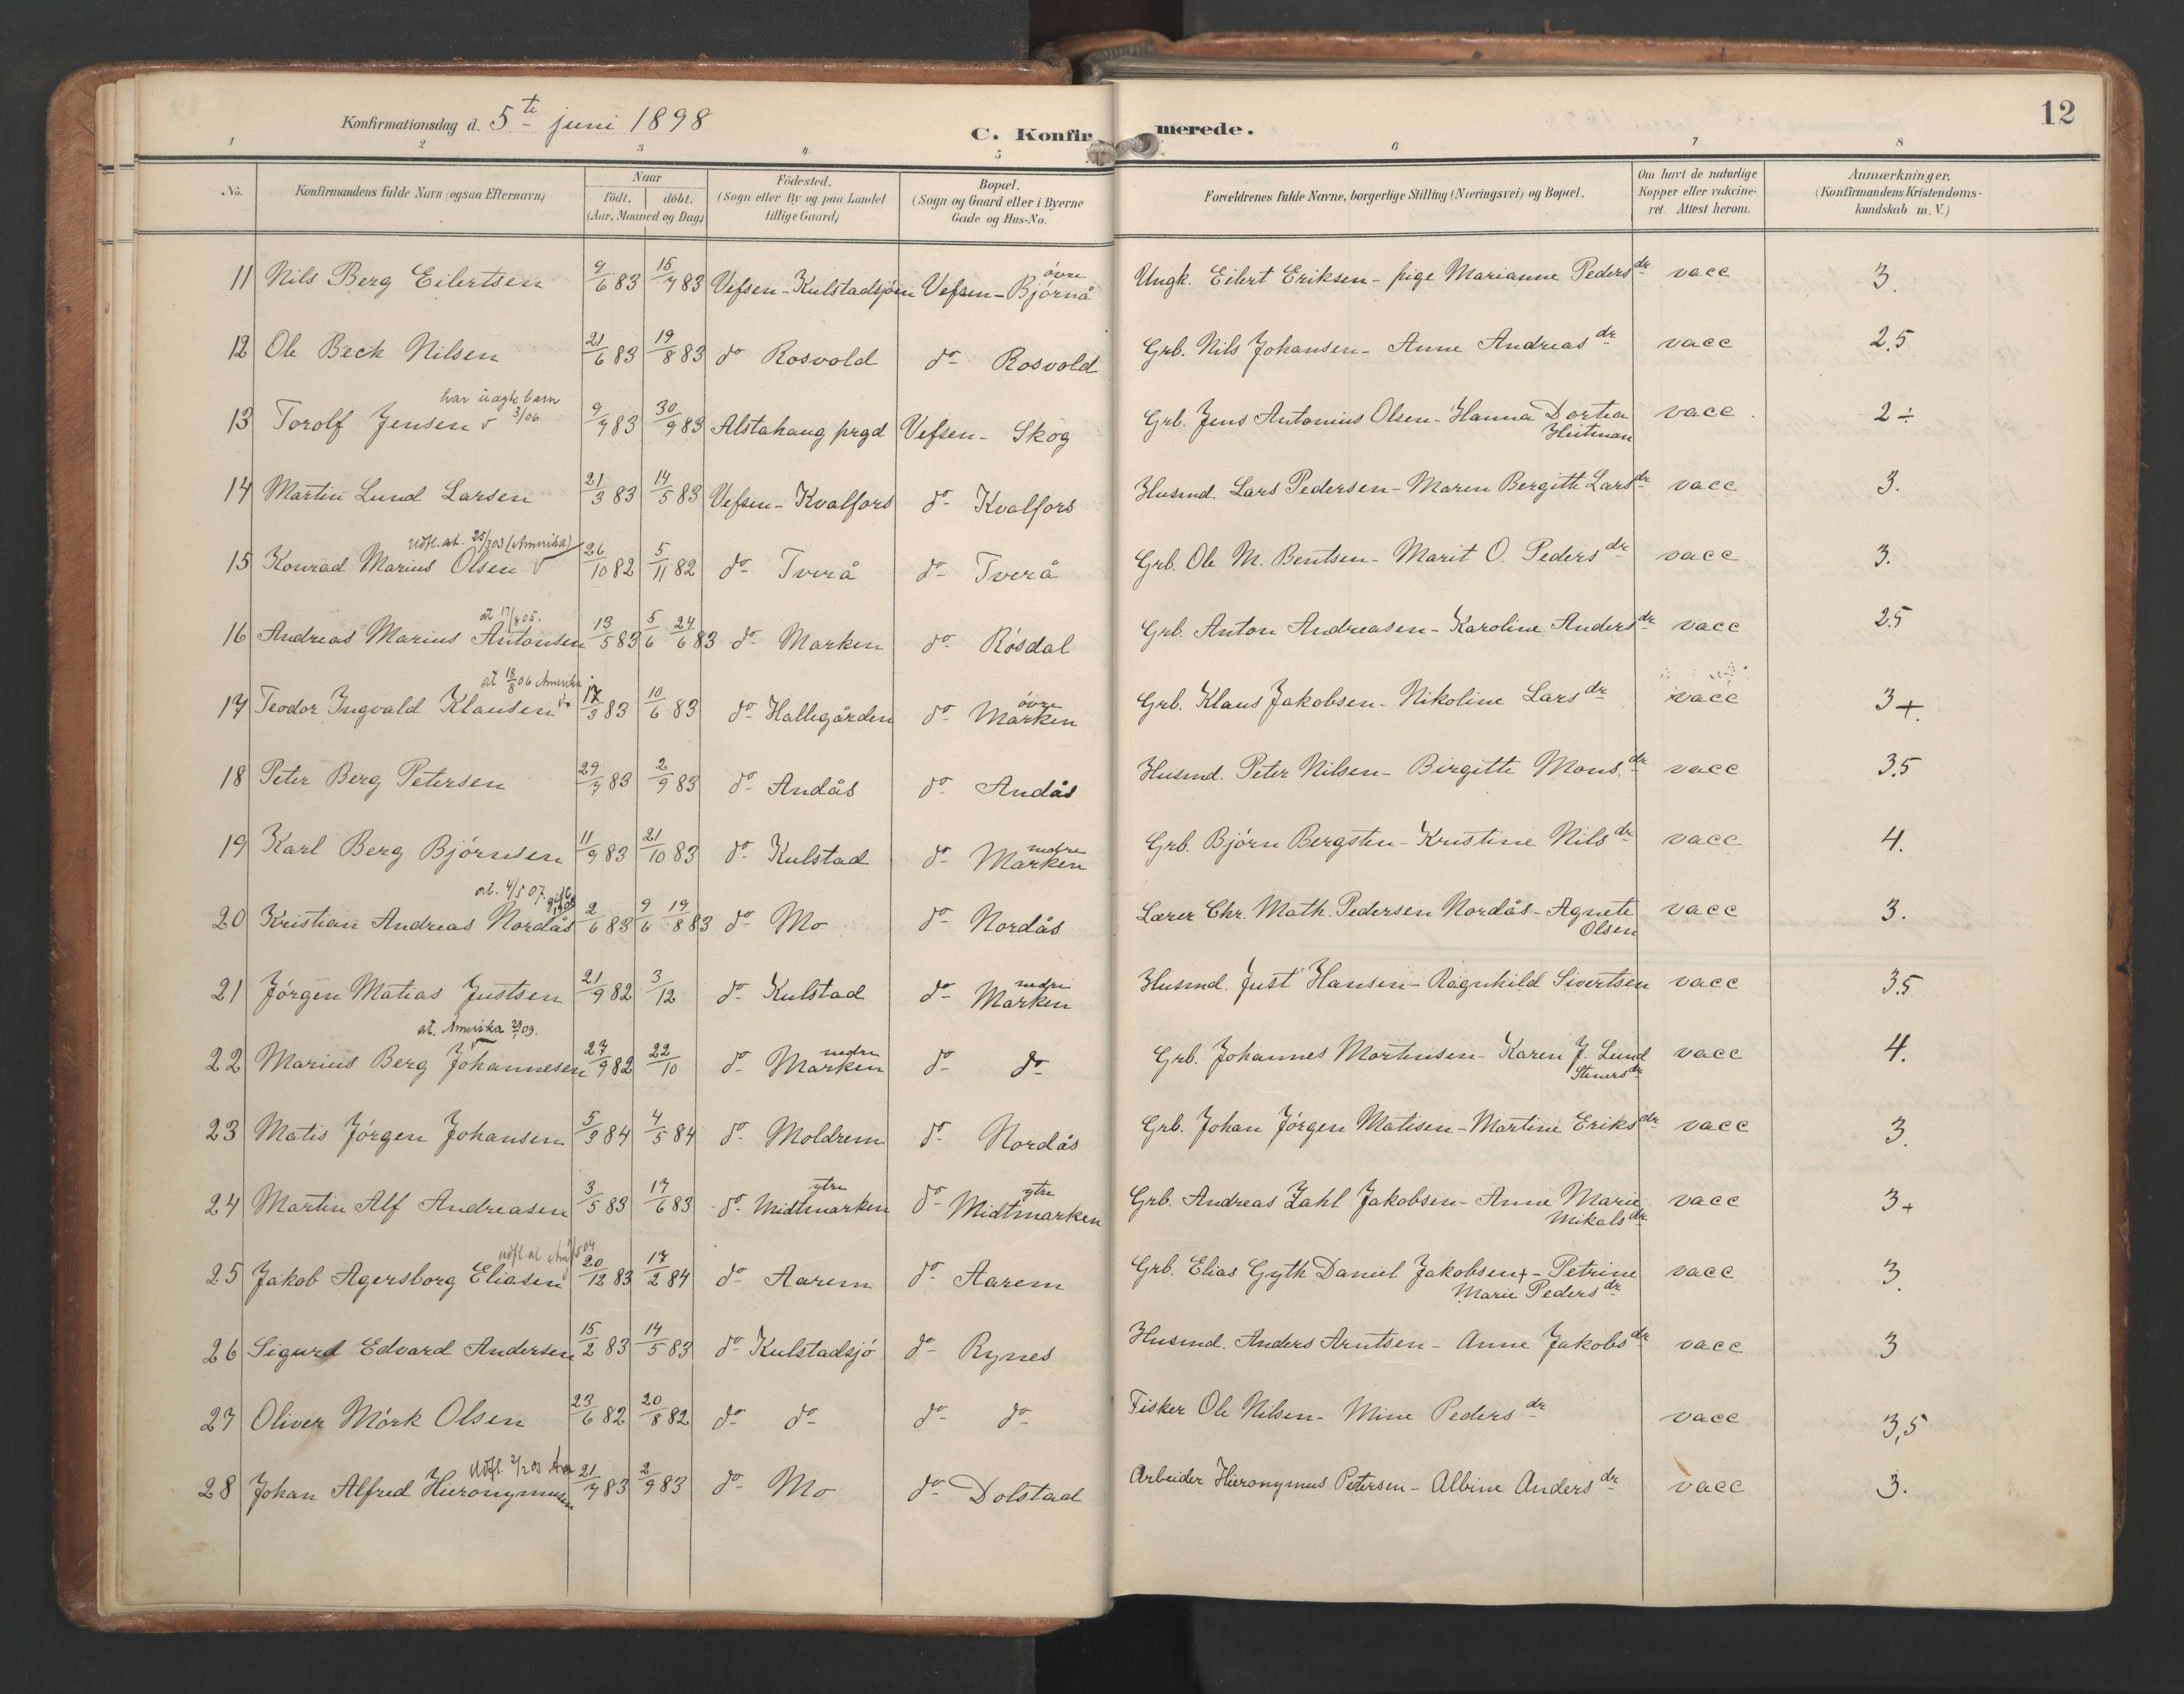 12
Konfirmationsdag d. 5te juni 1898
C. Konfirmerede.
1 2 3 4 5 6 7 8
No. Konfirmandens fulde Navn (ogsaa Efternavn) Naar født. døbt. (Aar, Maaned og Dag) Fødested. (Sogn eller By og paa Landet tillige Gaard) Bopæl. (Sogn og Gaard eller i Byerne Gade og Hus-No. Forældrenes fulde Navne, borgerlige Stilling (Næringsvei) og Bopæl. Om havt de naturlige Kopper eller vakcineret. Attest herom. Anmærkninger. (Konfirmandens Kristendomskundskab m. V.)
11 Nils Berg Eilertsen 9/6 83 15/7 83 Vefsen-Kulstadsjøen Vefsen-øvre Bjørnå Ungk. Eilert Eriksen - pige Marianne Pedersdr vacc 3.
12 Ole Beck Nilsen 21/6 83 19/8 83 do Rosvold do Rosvold Grb. Nils Johansen - Anne Andreasdr vacc 2.5
har uægte barn 3/06
13 Torolf Jensen v 9/7 83 30/9 83 Alstahaug prgd Vefsen - Skog Grb. Jens Antonius Olsen - Hanna Dortea Heitman vacc. 2÷
14 Martin Lund Larsen 21/3 83 14/5 83 Vefsen - Kvalfors do Kvalfors Husmd. Lars Pedersen - Maren Bergitte Larsdr vacc 3.
Udfl. at. 25/3 03 (Amerika)
15 Konrad Marius Olsen v 26/10 82 5/11 82 do Tverå do Tverå Grb. Ole M. Bentsen - Marit O. Pedersdr vacc 3.
at 17/8 05.
16 Andreas Marius Antonsen 13/5 83 5/6 24/6 83 do Marken do Røsdal Grb. Anton Andreasen - Karoline Andersdr vacc 2.5
at 18/8 06 Amerika
17 Teodor Ingvald Klausen 17/3 83 10/6 83 do Hallegården do øvre Marken Grb. Klaus Jakobsen - Nikoline Larsdr vacc 3+.
18 Peter Berg Petersen 29/7 83 2/9 83 do Andås do Andås Husmd. Peter Nilsen - Birgitte Monsdr vacc 3.5
19 Karl Berg Bjørnsen 11/9 83 21/10 83 do Kulstad do nedre Marken Grb. Bjørn Bergsten - Kristine Nilsdr vacc 4.
at. 4/5 07.
20 Kristian Andreas Nordås 2/6 83 9/6 19/8 83 do Mo do Nordås Lærer Chr. Math. Pedersen Nordås - Agnete Olsen vacc 3.
21 Jørgen Matias Justsen 21/9 82 3/12 do Kulstad do nedre Marken Husmd. Just Hansen - Ragnhild Sivertsen vacc 3.5
at. Amerika 09.
22 Marius Berg Johannesen 27/9 82 22/10 do nedre Marken do do Grb. Johannes Mortensen - Karen J. Lund Stenersdr vacc 4.
23 Matis Jørgen Johansen 5/3 84 4/5 84 do Moldrem do Nordås Grb. Johan Jørgen Matisen - Martine Eriksdr vacc 3.
24 Martin Alf Andreasen 3/5 83 17/6 83 do ytre Midtmarken do ytre Midtmarken Grb. Andreas Zahl Jakobsen - Anne Marie Mikalsdr vacc 3+
udfl. at Am
25 Jakob Agersborg Eliasen 20/12 83 17/2 84 do Aarem do Aarem Grb. Elias Gyth Daniel Jakobsen+ - Petrine Marie Pedersdr vacc 3.
26 Sigurd Edvard Andersen 15/2 83 14/5 83 do Kulstadsjø do Rynes Husmd. Anders Arntsen - Anne Jakobsdr vacc 3
27 Oliver Mørk Olsen 23/6 82 20/8 82 do do do do Fisker Ole Nilsen - Mine Pedersdr vacc 3,5
Udfl 2/2 03 Am
28 Johan Alfred Hieronymusen 21/7 83 2/9 83 do Mo do Dolstad Arbeider Hieronymus Petersen - Albine Andersdr vacc 3.